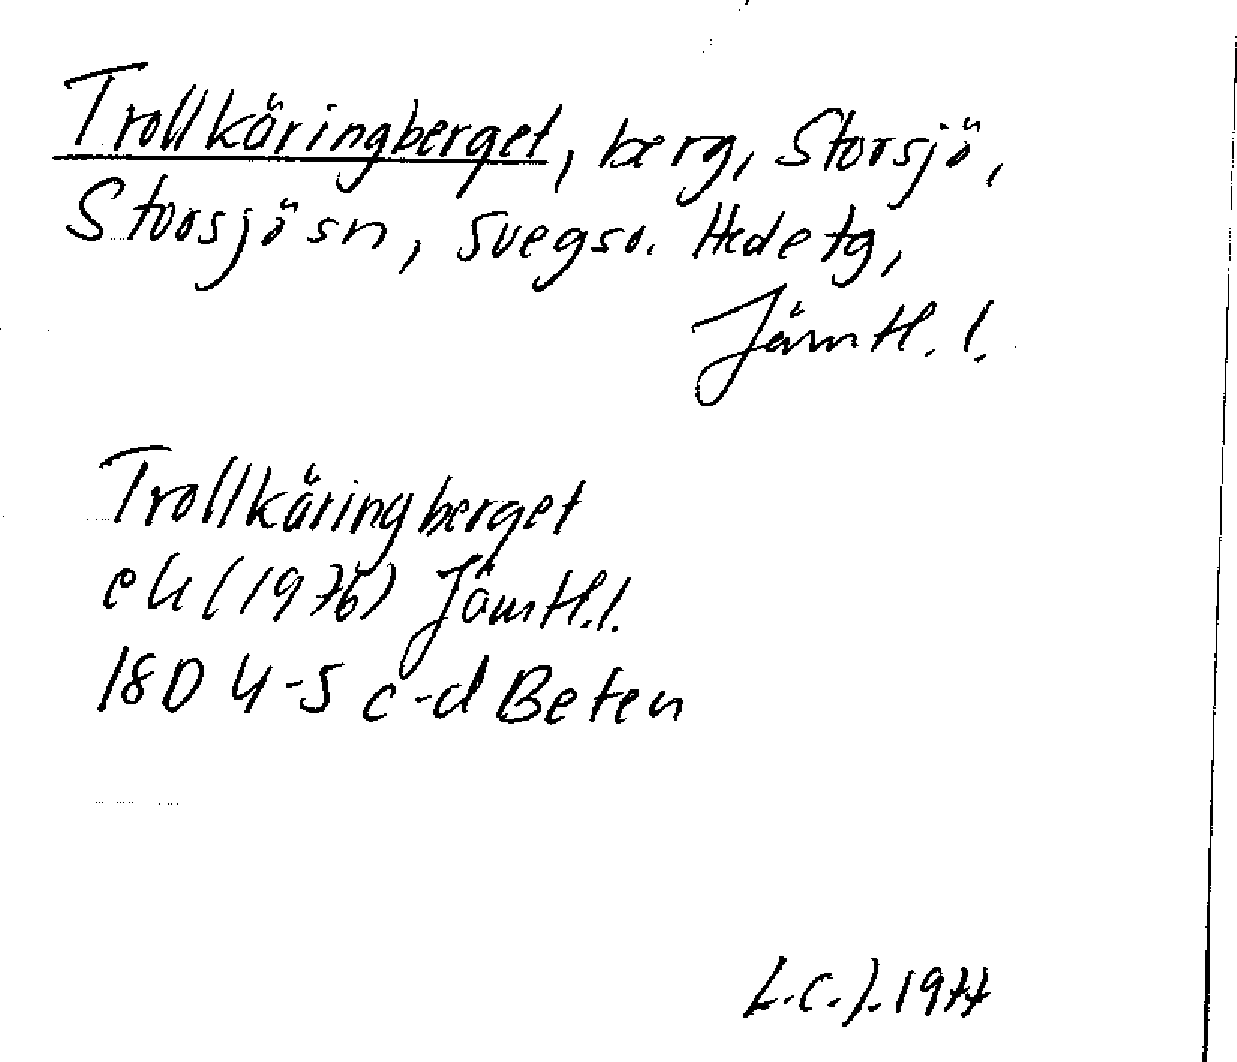 Trollkäringberget, berg, Storsjö,
Storsjö sn, Svegs o. Hede tg,
Jämtl. l.
Trollkäringberget
ek (1976) Jämtl. l.
18D 4-5 c-d Beten
L.C.J. 1977